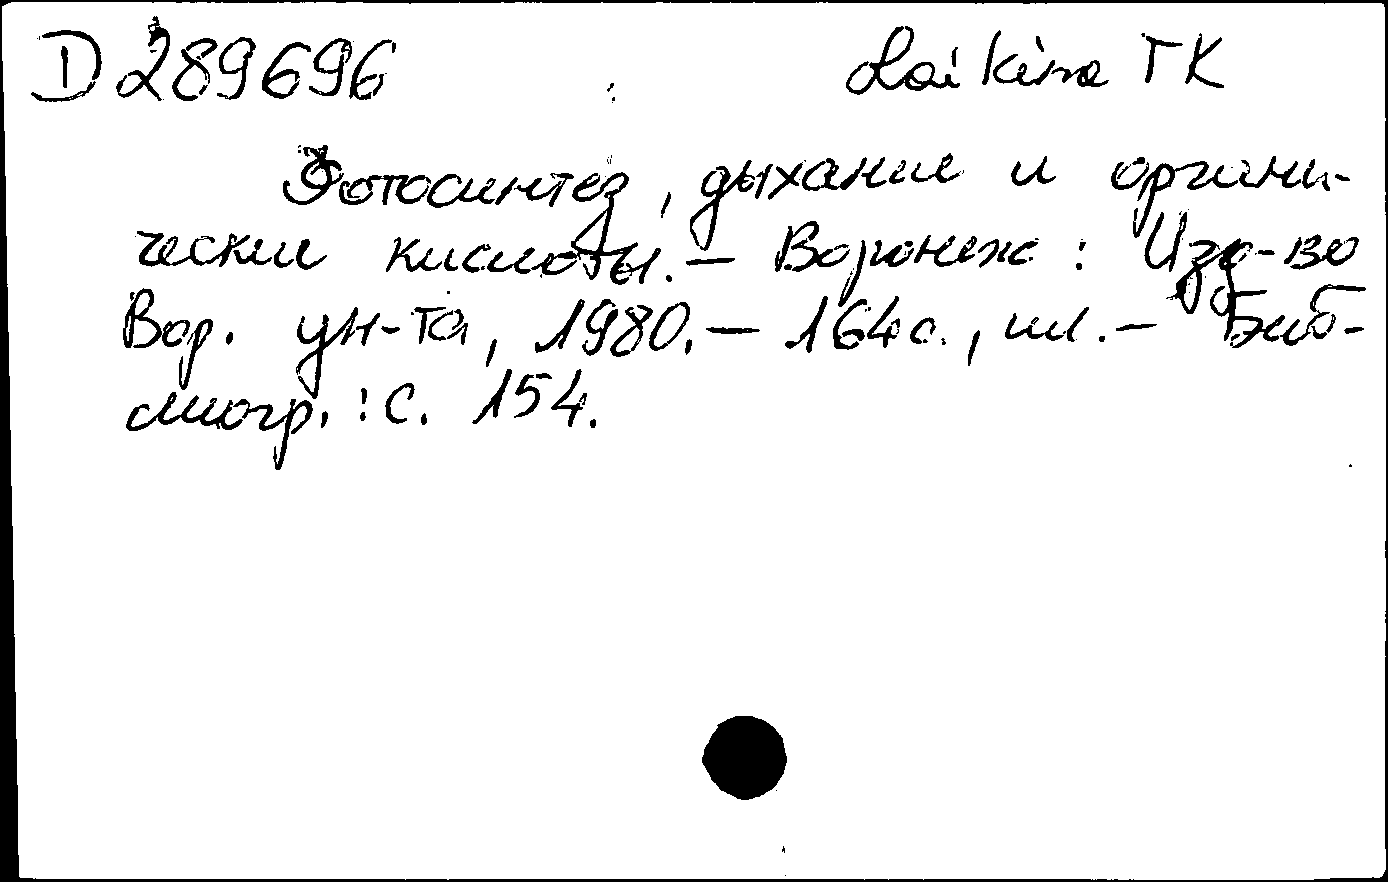 D 289696 Laikina ГК
Фотосинтез, дыхание и органи-
ческие кислоты. — Воронеж : Изд-во
Вор. ун-та, 1980. — 164 с., ил. — Биб-
лиогр. : с. 154.